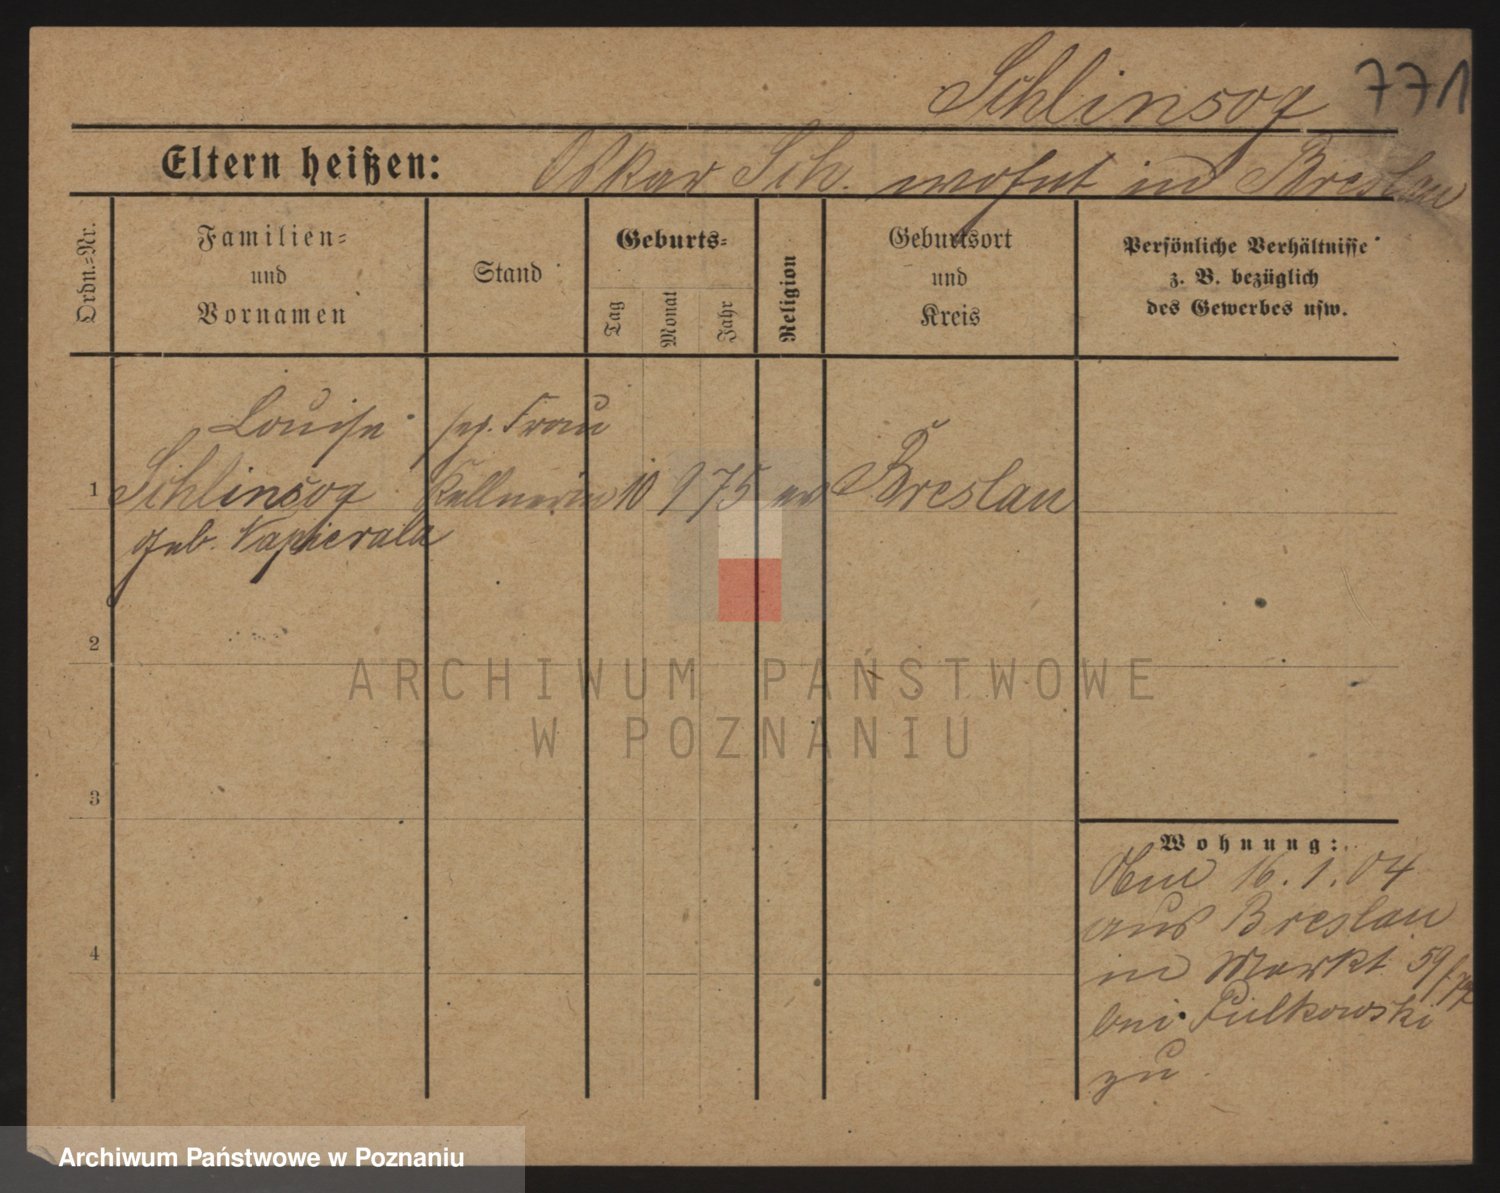 Schlinsog 771
Eltern heißen: Oskar Sch. wohnt in Breslau
Ordn.-Nr.
Familien-
und
Vornamen
Stand
Geburts-
Tag
Monat
Jahr
Religion
Geburtsort
und
Kreis
Persönliche Verhältnisse
z. B. bezüglich
des Gewerbes usw.
Louise sep. Frau
1 Schlinsog Kellnerin 10 9 75 ev Breslau
geb. Napierala
2
ARCHIWUM PAŃSTWOWE
W POZNANIU
3
Wohnung:
Am 16.1.04
aus Breslau
4
in Markt 59
bei Pulkowski
zu.
Archiwum Państwowe w Poznaniu